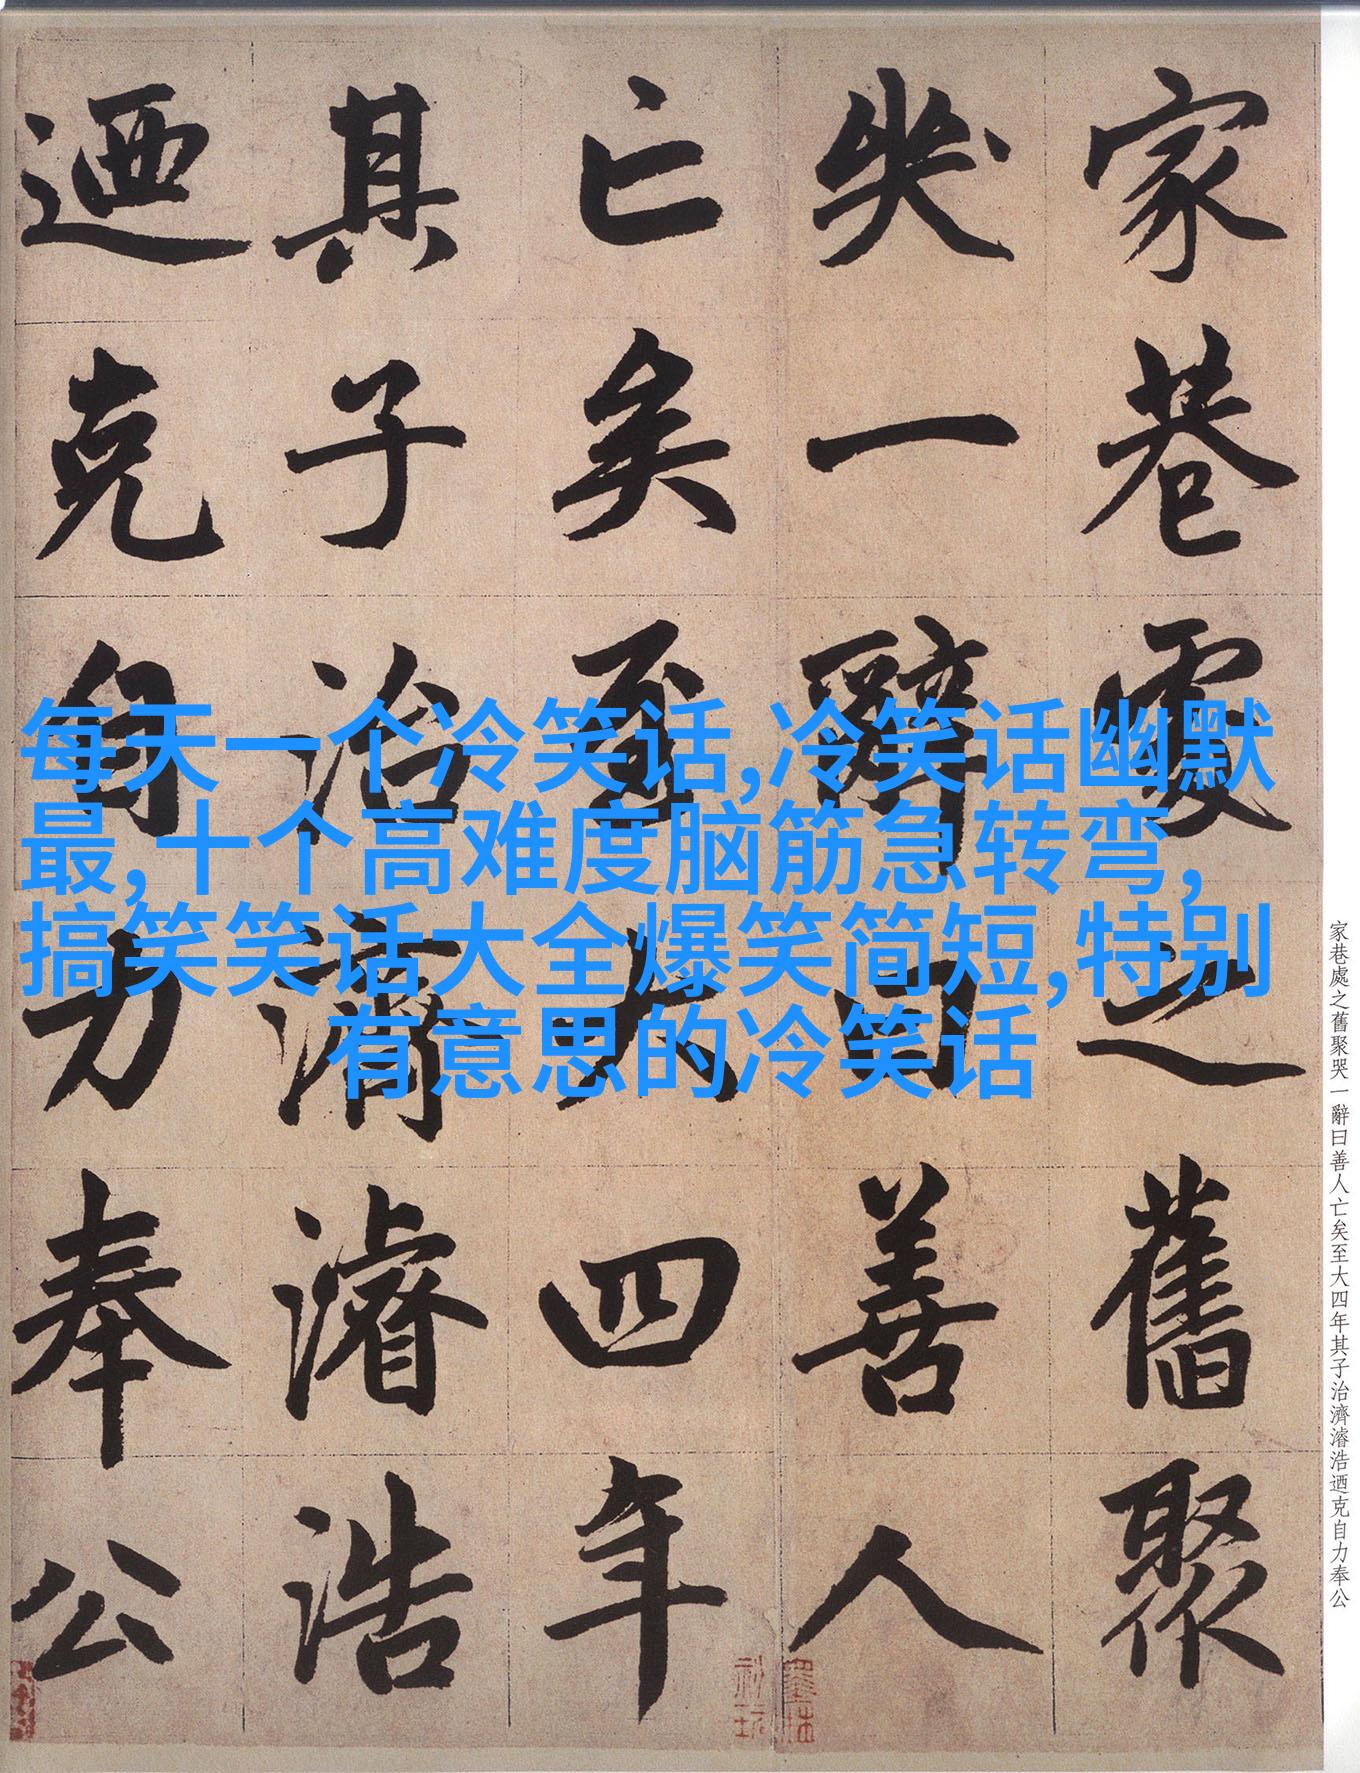 家巷處之舊聚
哭一辭曰善人
亡矣至大四年
其子治濟濬浩
迺克自力奉公
每天一个冷笑话,冷笑话幽默
最,十个高难度脑筋急转弯,
搞笑笑话大全爆笑简短,特别
有意思的冷笑话
家巷處之舊聚哭一辭曰善人亡矣至大四年其子治濟濬浩迺克自力奉公